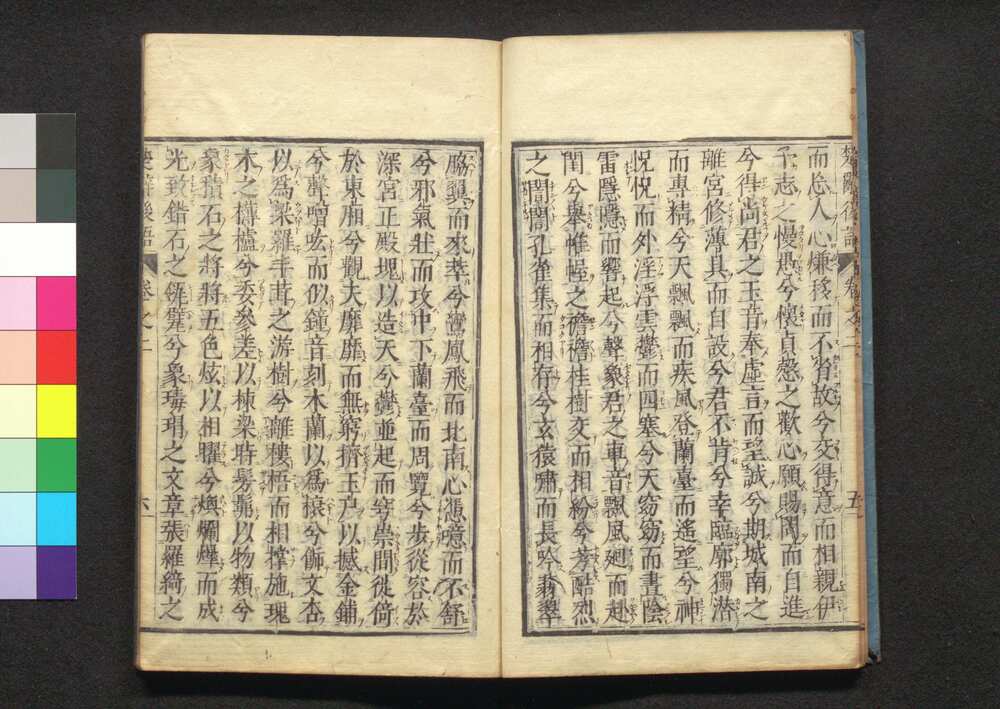 楚辭後語 卷之二 五
而忘人心慊移而不省故兮交得意而相親伊
予志之慢愚兮懷貞慤之歡心願賜問而自進
兮得尚君之玉音奉虛言而望誠兮期城南之
離宮修薄具而自設兮君不肯兮幸臨廓獨潜
而專精兮天飄飄而疾風登蘭臺而遙望兮神
怳怳而外淫浮雲鬱而四塞兮天窈窈而晝陰
雷隱隱而響起兮聲象君之車音飄風廻而赴
閨兮舉帷幄之襜襜桂樹交而相紛兮芳酷烈
之誾誾孔雀集而相存兮玄猿嘯而長吟翡翠
脇翼而來萃兮鸞鳳飛而北南心憑噫而不舒
兮邪氣壯而攻中下蘭臺而周覽兮步從容於
深宮正殿塊以造天兮鬱並起而穹崇間徙倚
於東廂兮觀夫靡靡而無窮擠玉户以撼金鋪
兮聲噌吰而似鐘音刻木蘭以爲榱兮飾文杏
以爲梁羅丰茸之游樹兮離樓梧而相撑施瑰
木之欂櫨兮委參差以槺梁時髣髴以物類兮
象積石之將將五色炫以相曜兮煥爛爗而成
光致錯石之瓴甓兮象瑇瑁之文章張羅綺之
楚辭後語 卷之二 六